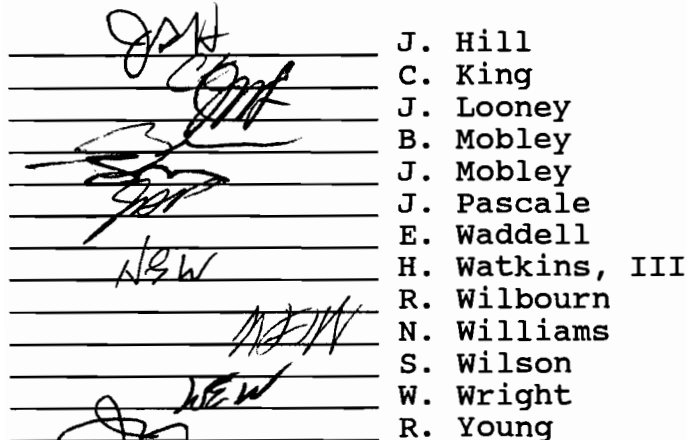 JSH J. Hill
C. King
J. Looney
B. Mobley
J. Mobley
J. Pascale
E. Waddell
HSW H. Watkins, III
R. Wilbourn
N. Williams
S. Wilson
WEW W. Wright
R. Young